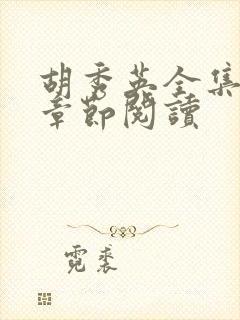 胡秀英全集
章節閱讀
霓裘